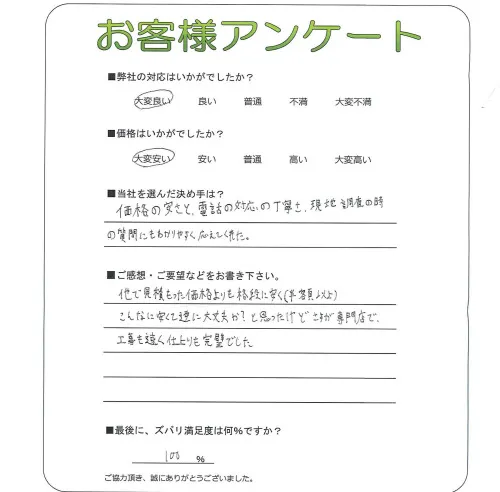 お客様アンケート
■弊社の対応はいかがでしたか？
大変良い 良い 普通 不満 大変不満
■価格はいかがでしたか？
大変安い 安い 普通 高い 大変高い
■当社を選んだ決め手は？
価格の安さと、電話の対応の丁寧さ、現地調査の時
の質問にもわかりやすく応えてくれた。
■ご感想・ご要望などをお書き下さい。
他で見積もった価格よりも格段に安く(半額以上)
こんなに安くて逆に大丈夫か？と思ったけどさすが専門店で、
工事も速く仕上りも完璧でした
■最後に、ズバリ満足度は何％ですか？
100 ％
ご協力頂き、誠にありがとうございました。